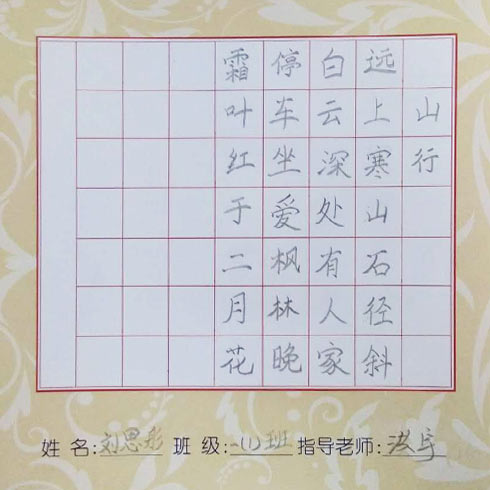 山行
远上寒山石径斜
白云深处有人家
停车坐爱枫林晚
霜叶红于二月花
姓名:刘思彤 班级:一(1)班 指导老师: